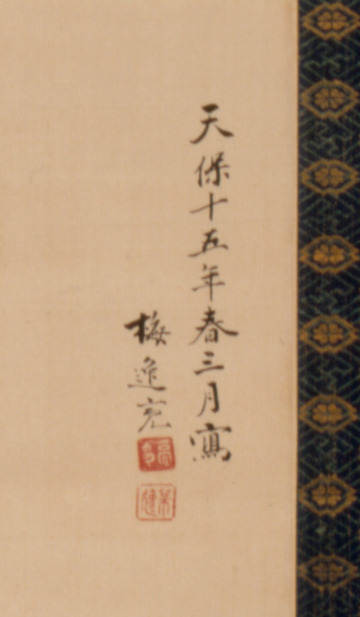 天保十五年春三月寫
梅逸亮